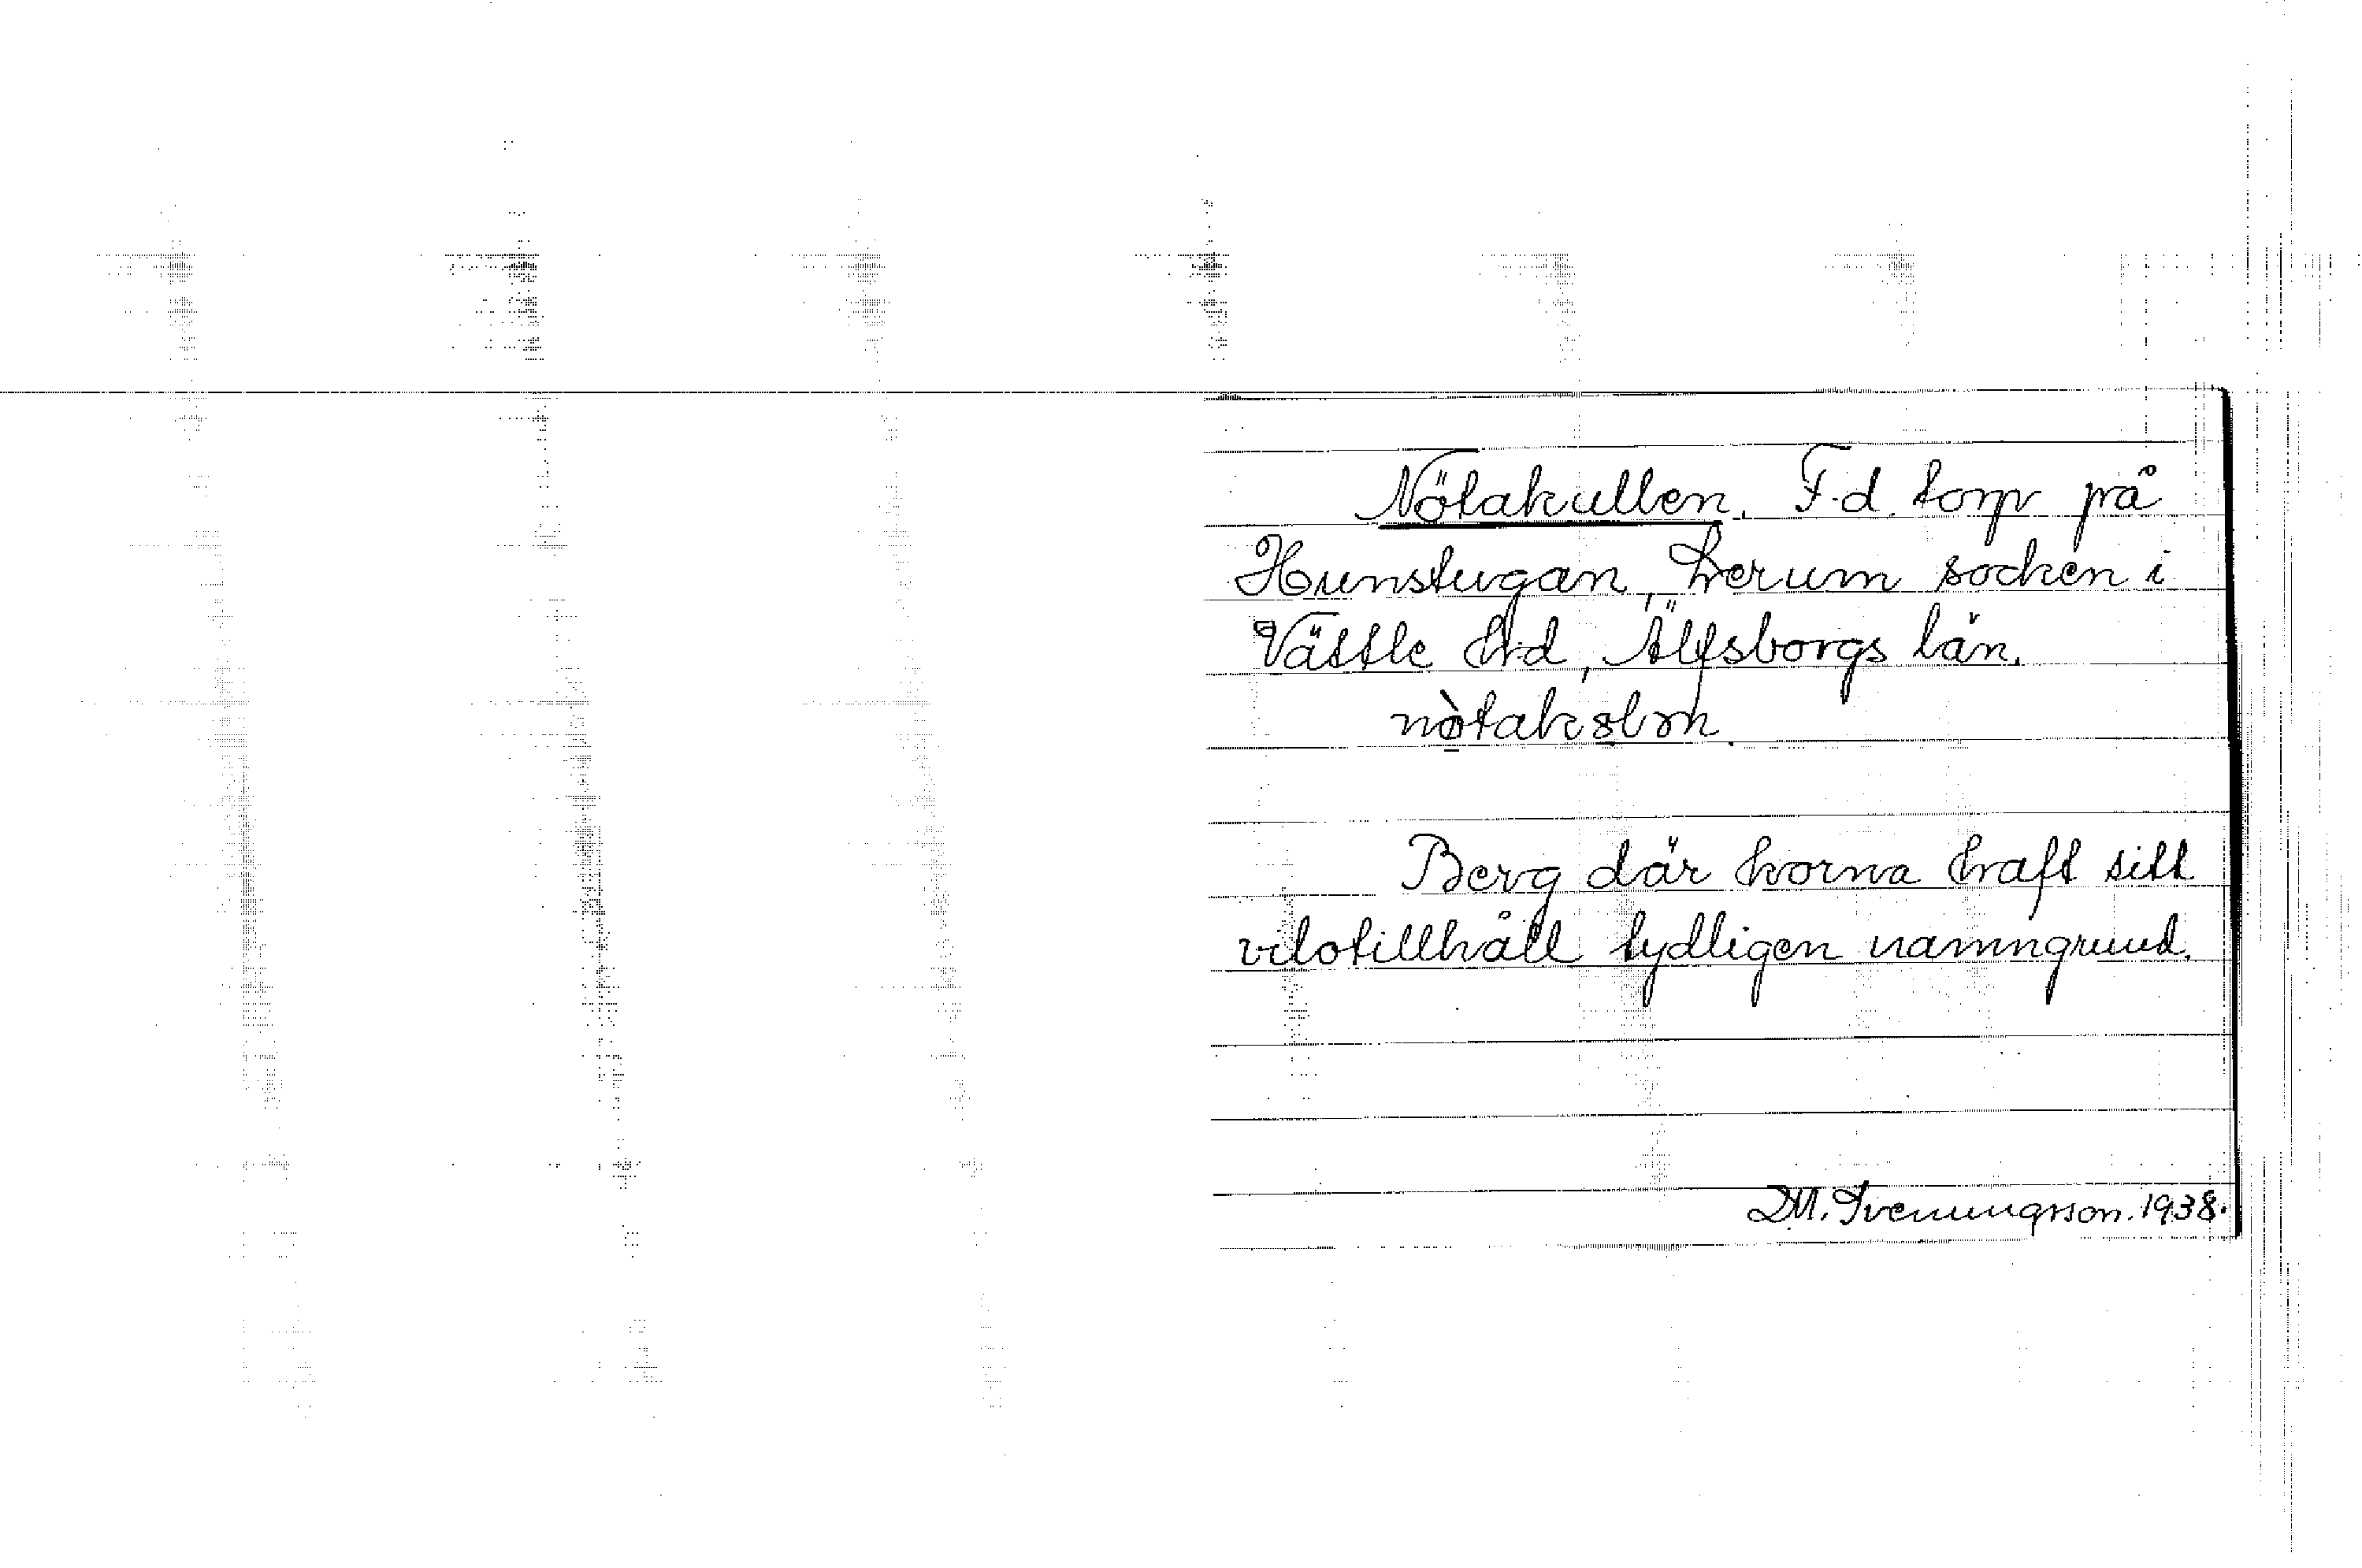 Nötakullen. F.d. torp på
Hunstugan, Lerum socken i
Vättle hd, Älfsborgs län.
Berg där korna haft sitt
vilotillhåll tydligen namngrund.
D.M. Svenningsson. 1938.